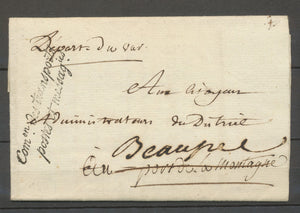 Départ. du var.
Com.on des Transports
postes et Messag.ies
Aux Citoyens
Administrateurs du District
Beausset
au port de la Montagne